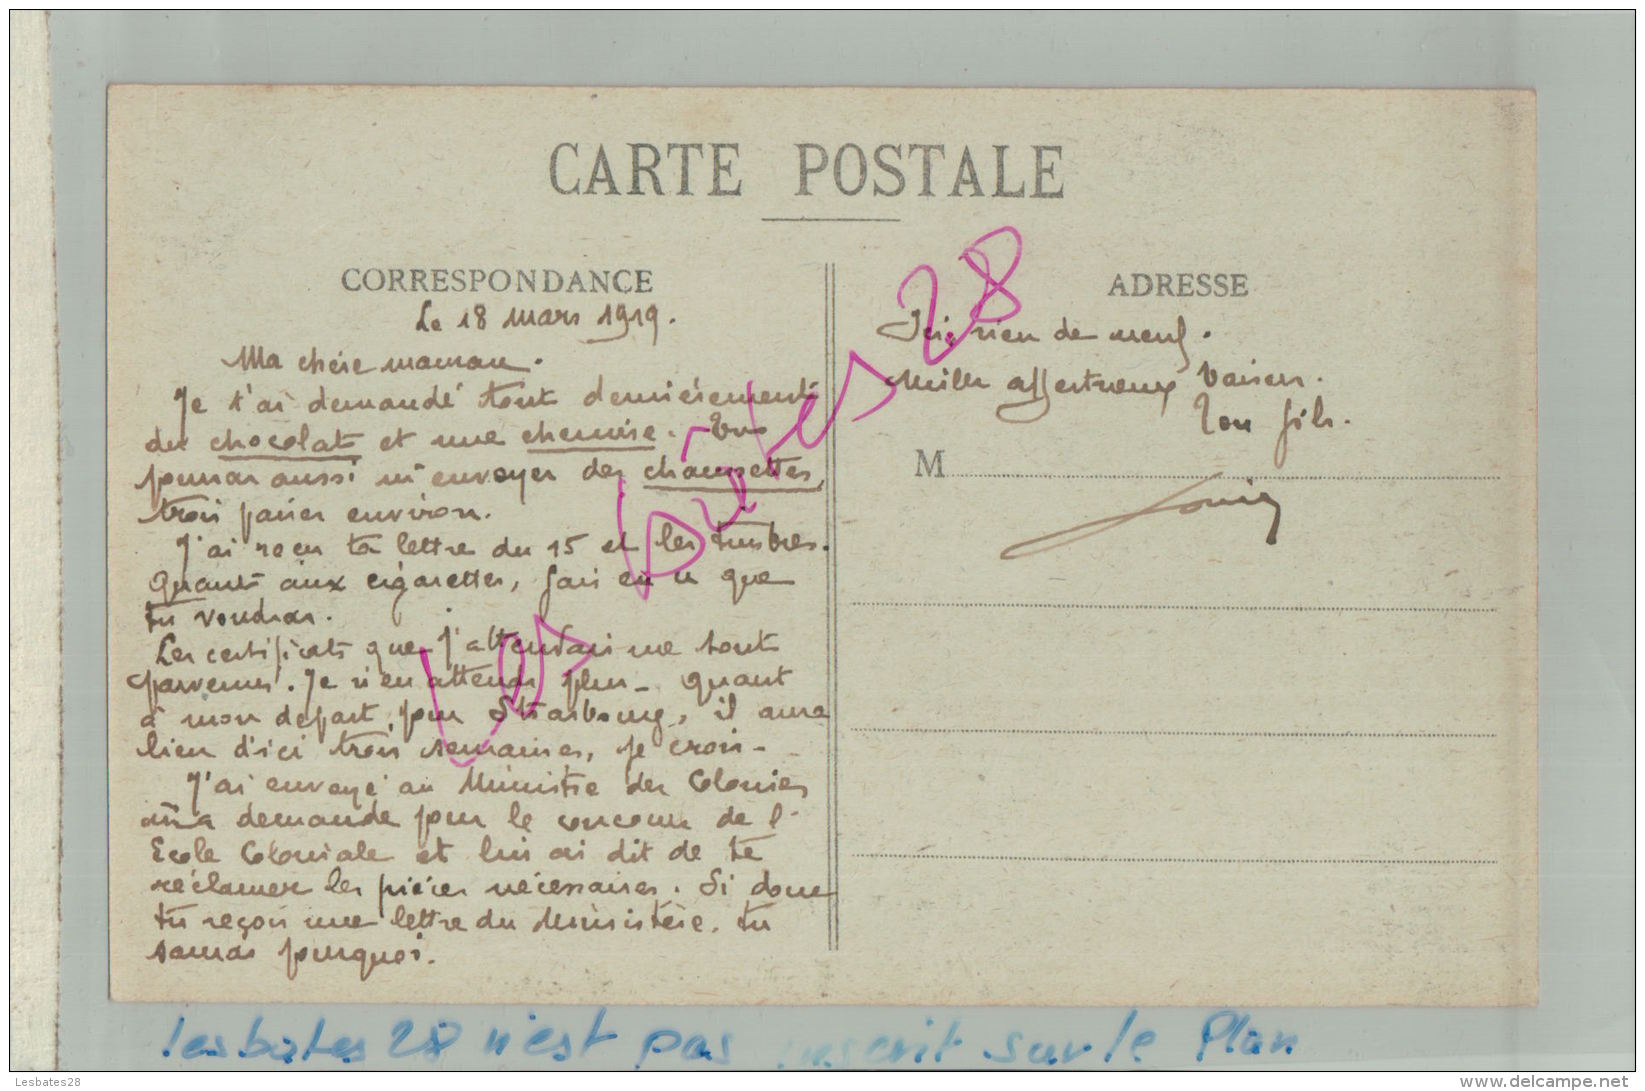 CARTE POSTALE
CORRESPONDANCE
Le 18 mars 1919.
Ma chère maman.
Je t'ai demandé tout dernièrement
du chocolat et une chemise. Tu
pourras aussi m'envoyer des chaussettes,
trois paires environ.
J'ai reçu ta lettre du 15 et les timbres.
Quant aux cigarettes, fais en ce que
tu voudras.
Les certificats que j'attendais me sont
parvenus. Je n'en attends plus. Quant
à mon départ pour Strasbourg, il aura
lieu d'ici trois semaines, je crois.
J'ai envoyé au Ministre des Colonies
ma demande pour le concours de l'
Ecole Coloniale et lui ai dit de te
réclamer les pièces nécessaires. Si donc
tu reçois une lettre du Ministère, tu
sauras pourquoi.
ADRESSE
Ici, rien de neuf.
Mille affectueux baisers.
Ton fils.
M
Louis
Les bates 28
les bates 28 n'est pas inscrit sur le Plan
Lesbates28
www.delcampe.net